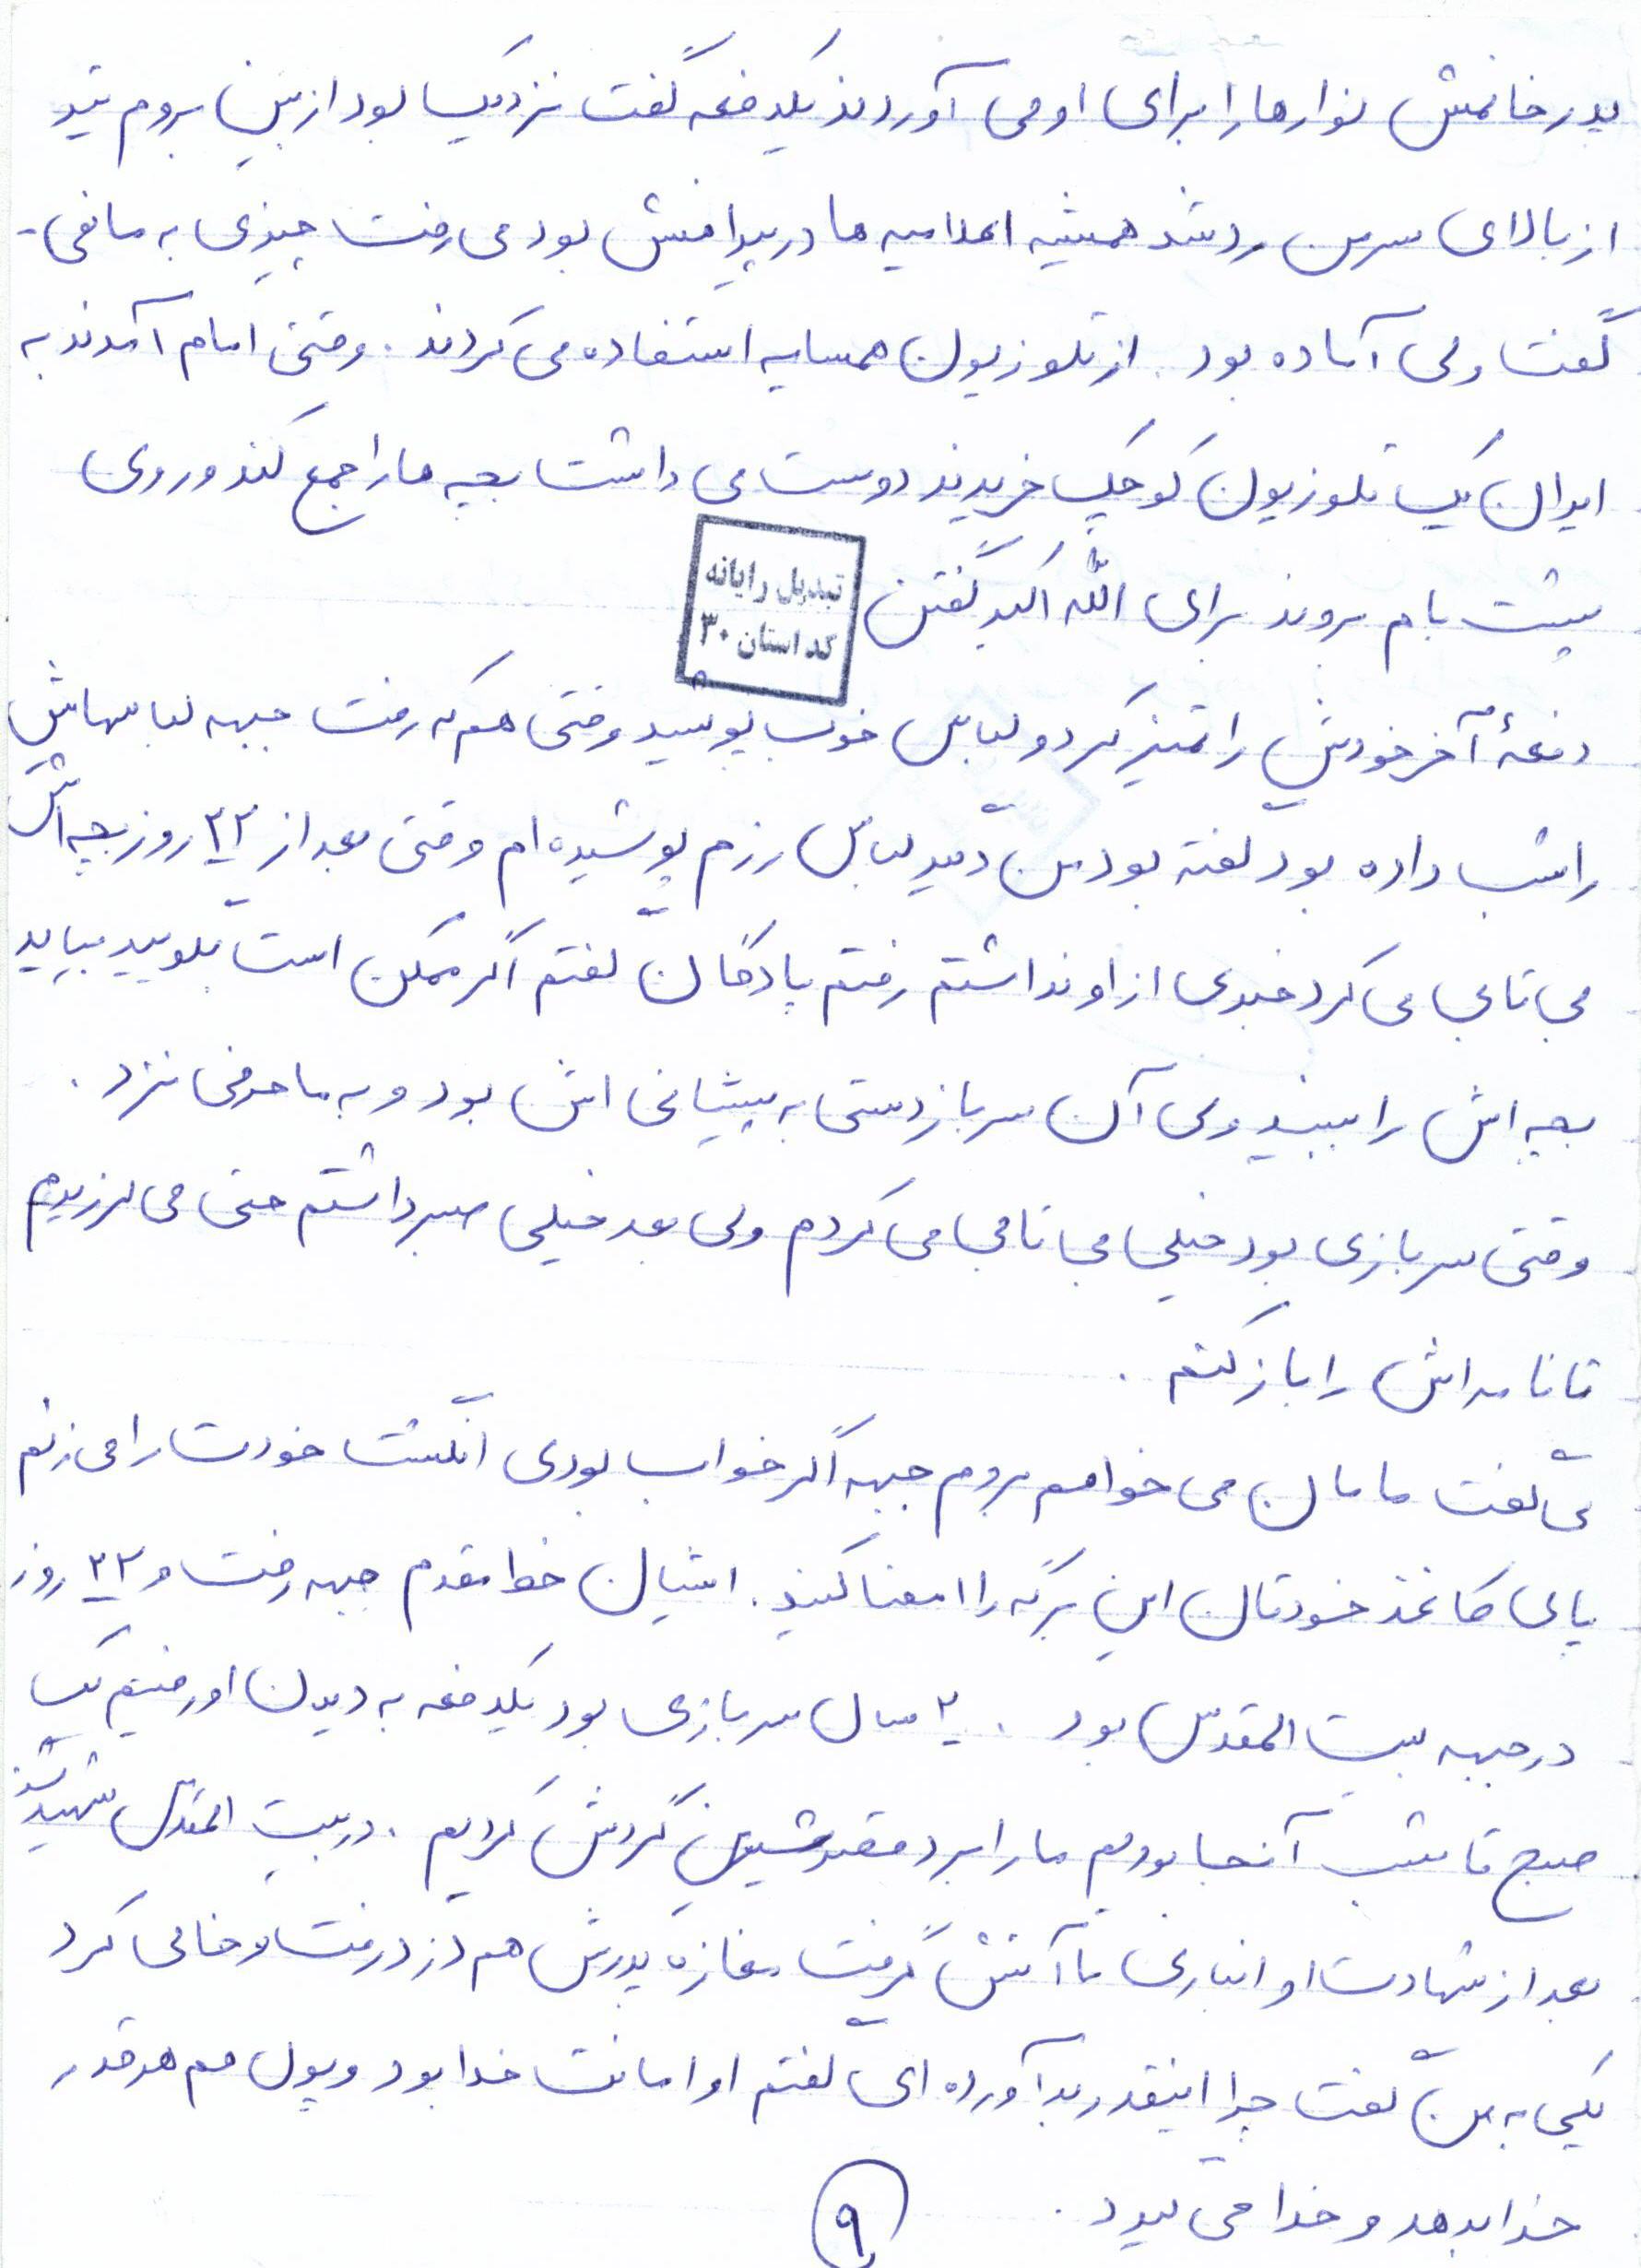 پدر خانمش نوارها را برای او می آوردند یکدفعه گفت نزدیک بود از بین بروم تیر
از بالای سرمن رد شد همیشه اعلامیه ها در پیراهنش بود می رفت چیزی به ما نمی-
گفت ولی آماده بود. از تلوزیون همسایه استفاده می کردند. وقتی امام آمدند به
ایران یک تلوزیون کوچک خریدند دوست می داشت بچه ها را جمع کند و روی
پشت بام بروند برای الله اکبر گفتن
تبدیل رایانه
کد استان ۳۰
دفعۀ آخر خودش را تمیز کرد و لباس خوب پوشید وقتی هم که رفت جبهه لباسهایش
را شب داده بود گفته بود من دیگر لباس رزم پوشیده ام وقتی بعد از ۲۲ روز بچه اش
بی تابی می کرد خبری از او نداشتم رفتم پادگان گفتم اگر ممکن است بگویید بیاید
بچه اش را ببیند ولی آن سرباز دستی به پیشانی اش بود و به ما حرفی نزد.
وقتی سربازی بود خیلی بی تابی می کردم ولی بعد خیلی صبر داشتم حتی می لرزیدم
تا نامه اش را باز کنم.
می گفت مامان می خواهم بروم جبهه اگر خواب بودی انگشت خودت را می زنم
پای کاغذ خودتان این برگه را امضا کنید. ایشان خط مقدم جبهه رفت و ۲۲ روز
در جبهه بیت المقدس بود. ۲ سال سربازی بود یکدفعه به دیدن او رفتیم یک
صبح تا شب آنجا بودیم ما را برد قصر شیرین گردش کردیم. در بیت المقدس شهید شد
بعد از شهادت او انباری ما آتش گرفت مغازه پدرش هم دزد رفت و خالی کرد
یکی به من گفت چرا اینقدر بد آورده ای گفتم او امانت خدا بود و پول هم هر قدر
خدا بدهد و خدا می برد.
۹